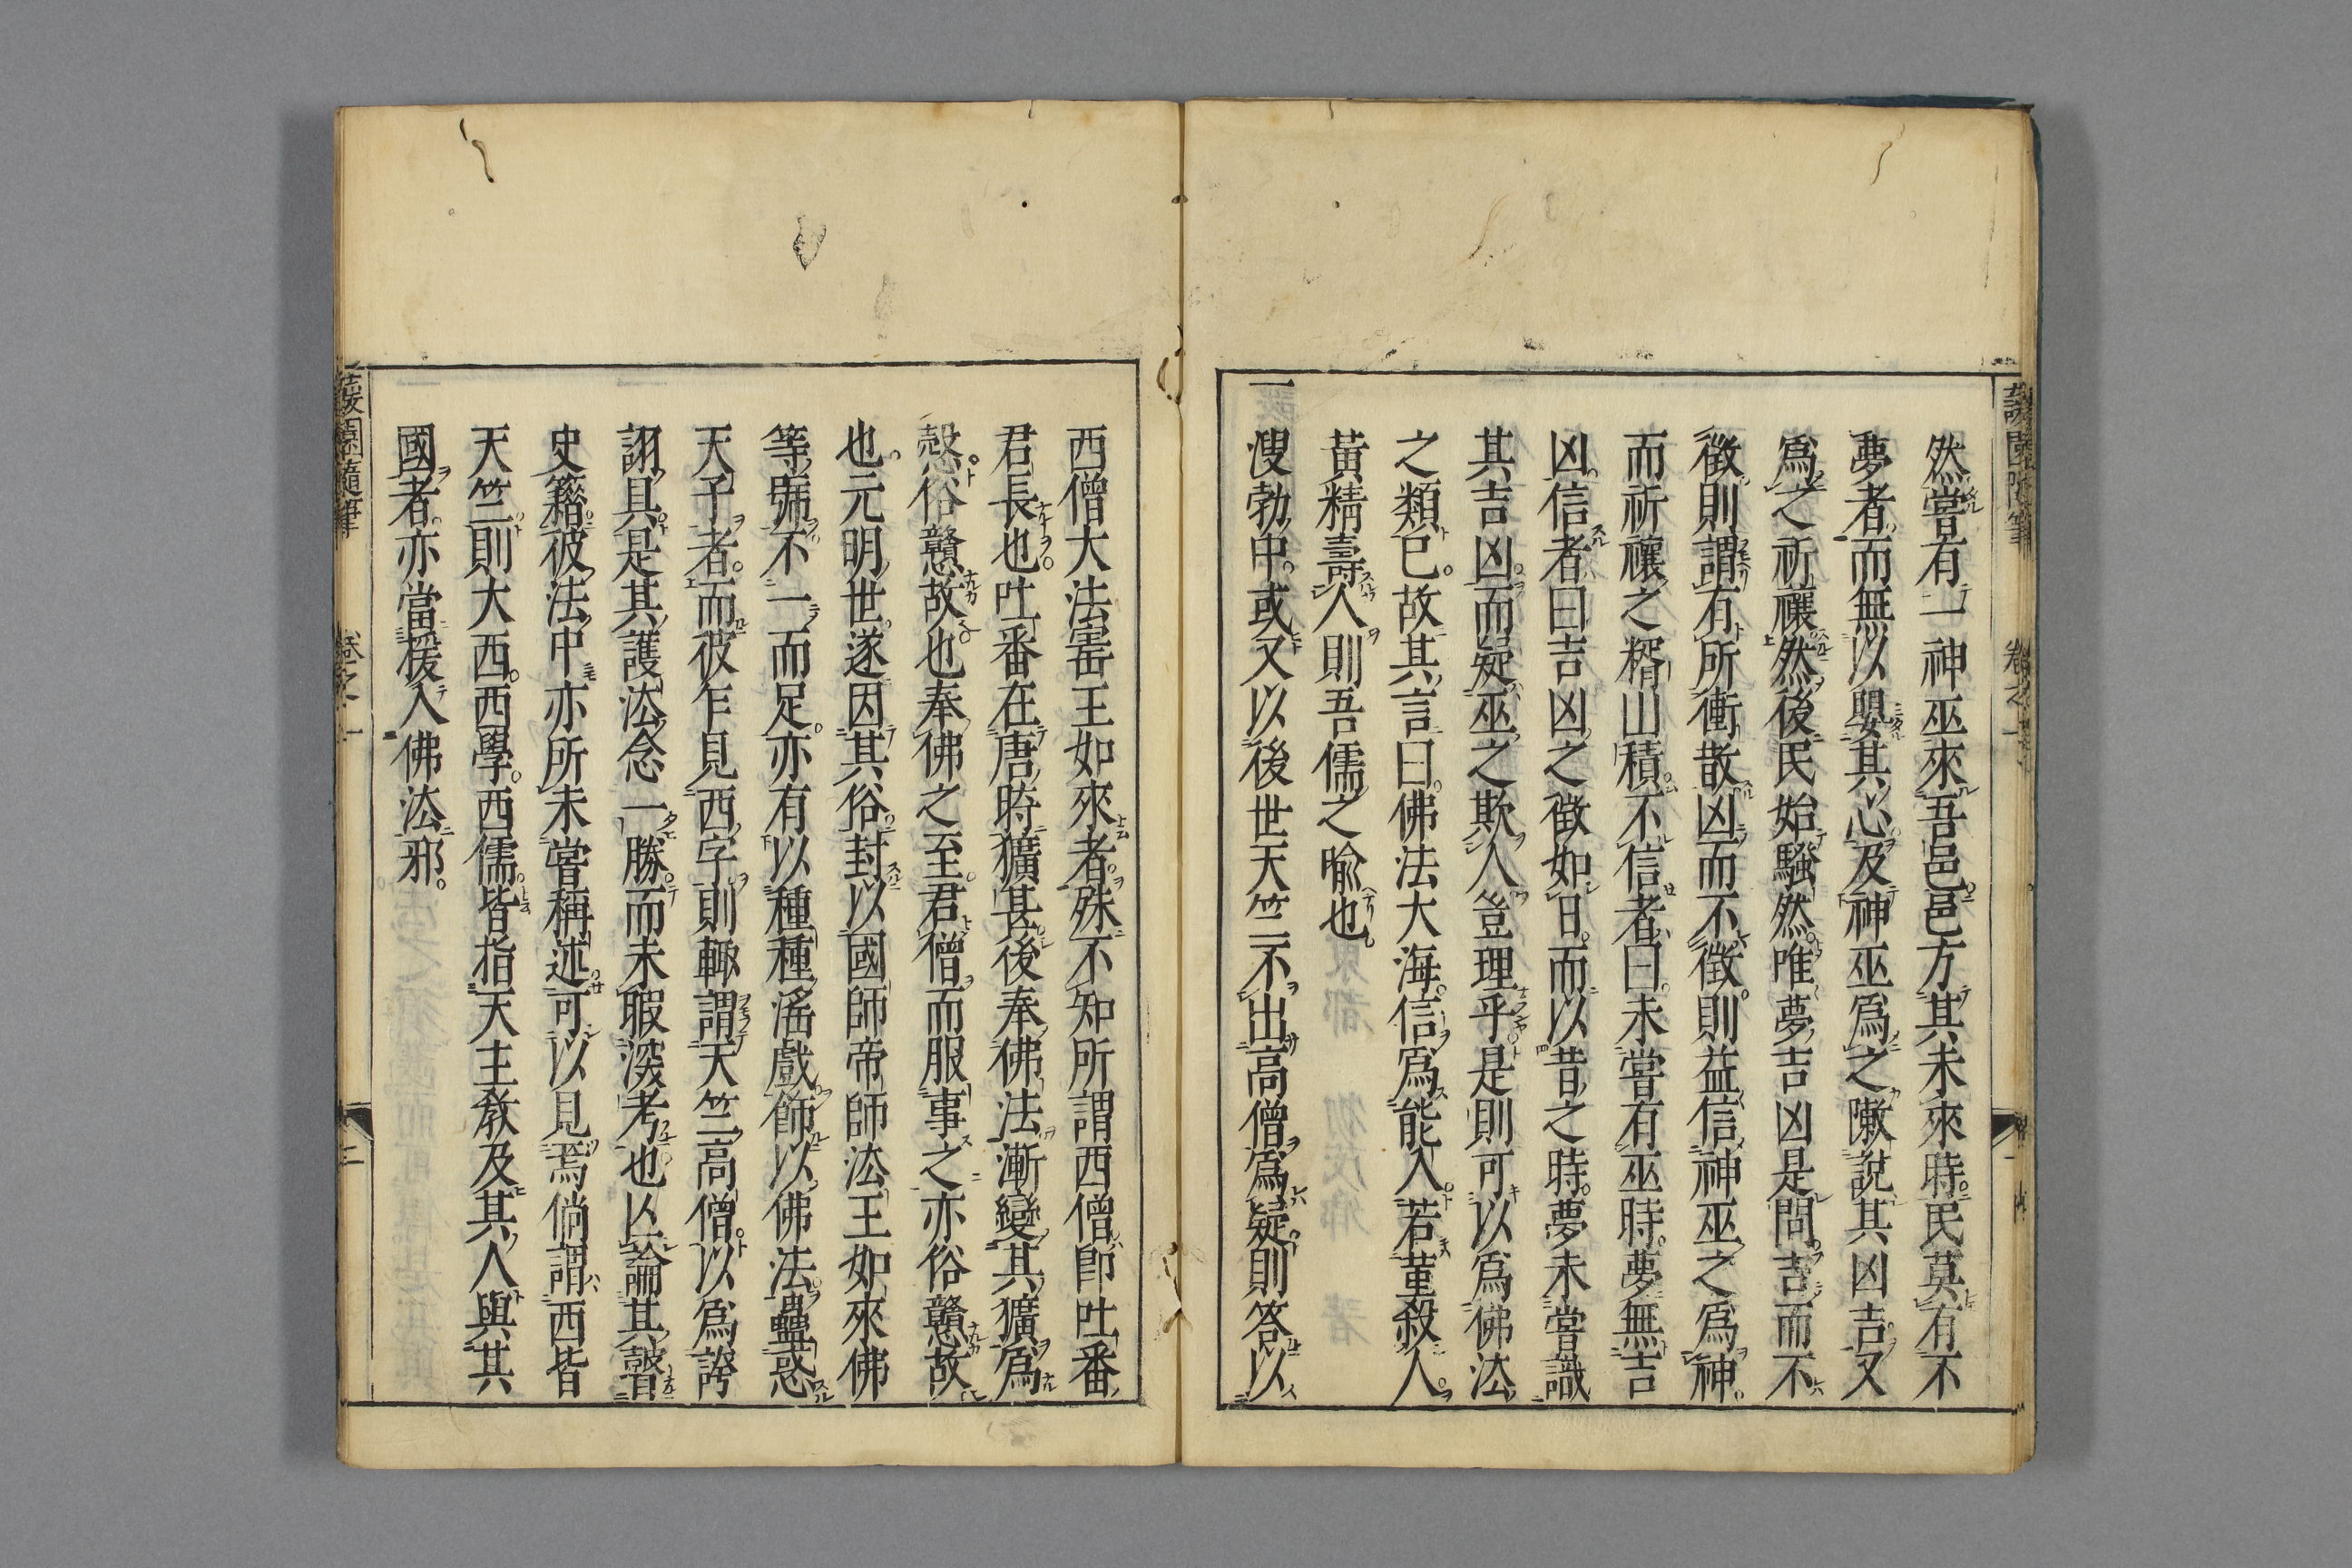 然嘗有一神巫來吾邑邑方其未來時民莫有不
夢者而無以嬰其心及神巫爲之噉說其凶吉又
爲之祈禳然後民始騷然唯夢吉凶是問吉而不
徵則謂有所衝散凶而不徵則益信神巫之爲神
而祈禳之糈山積不信者曰未嘗有巫時夢無吉
凶信者曰吉凶之徵如日而以昔之時夢未嘗識
其吉凶而疑巫之欺人豈理乎是則可以爲佛法
之類已故其言曰佛法大海信爲能入若菫殺人
黃精壽人則吾儒之喩也
一溲勃中或又以後世天竺不出高僧爲疑則答以
西僧大法寶王如來者殊不知所謂西僧卽吐番
君長也吐番在唐時獷甚後奉佛法漸變其獷爲
愨俗戇故也奉佛之至君僧而服事之亦俗戇故
也元明世遂因其俗封以國師帝師法王如來佛
等號不一而足亦有以種種滛戲飾以佛法蠱惑
天子者而彼乍見西字則輙謂天竺高僧以爲誇
詡具是其護法念一勝而未暇深考也亾論其瞽
史籍彼法中亦所未嘗稱述可以見焉倘謂西皆
天竺則大西西學西儒皆指天主教及其人與其
國者亦當援入佛法邪
蘐園隨筆 卷之一 二